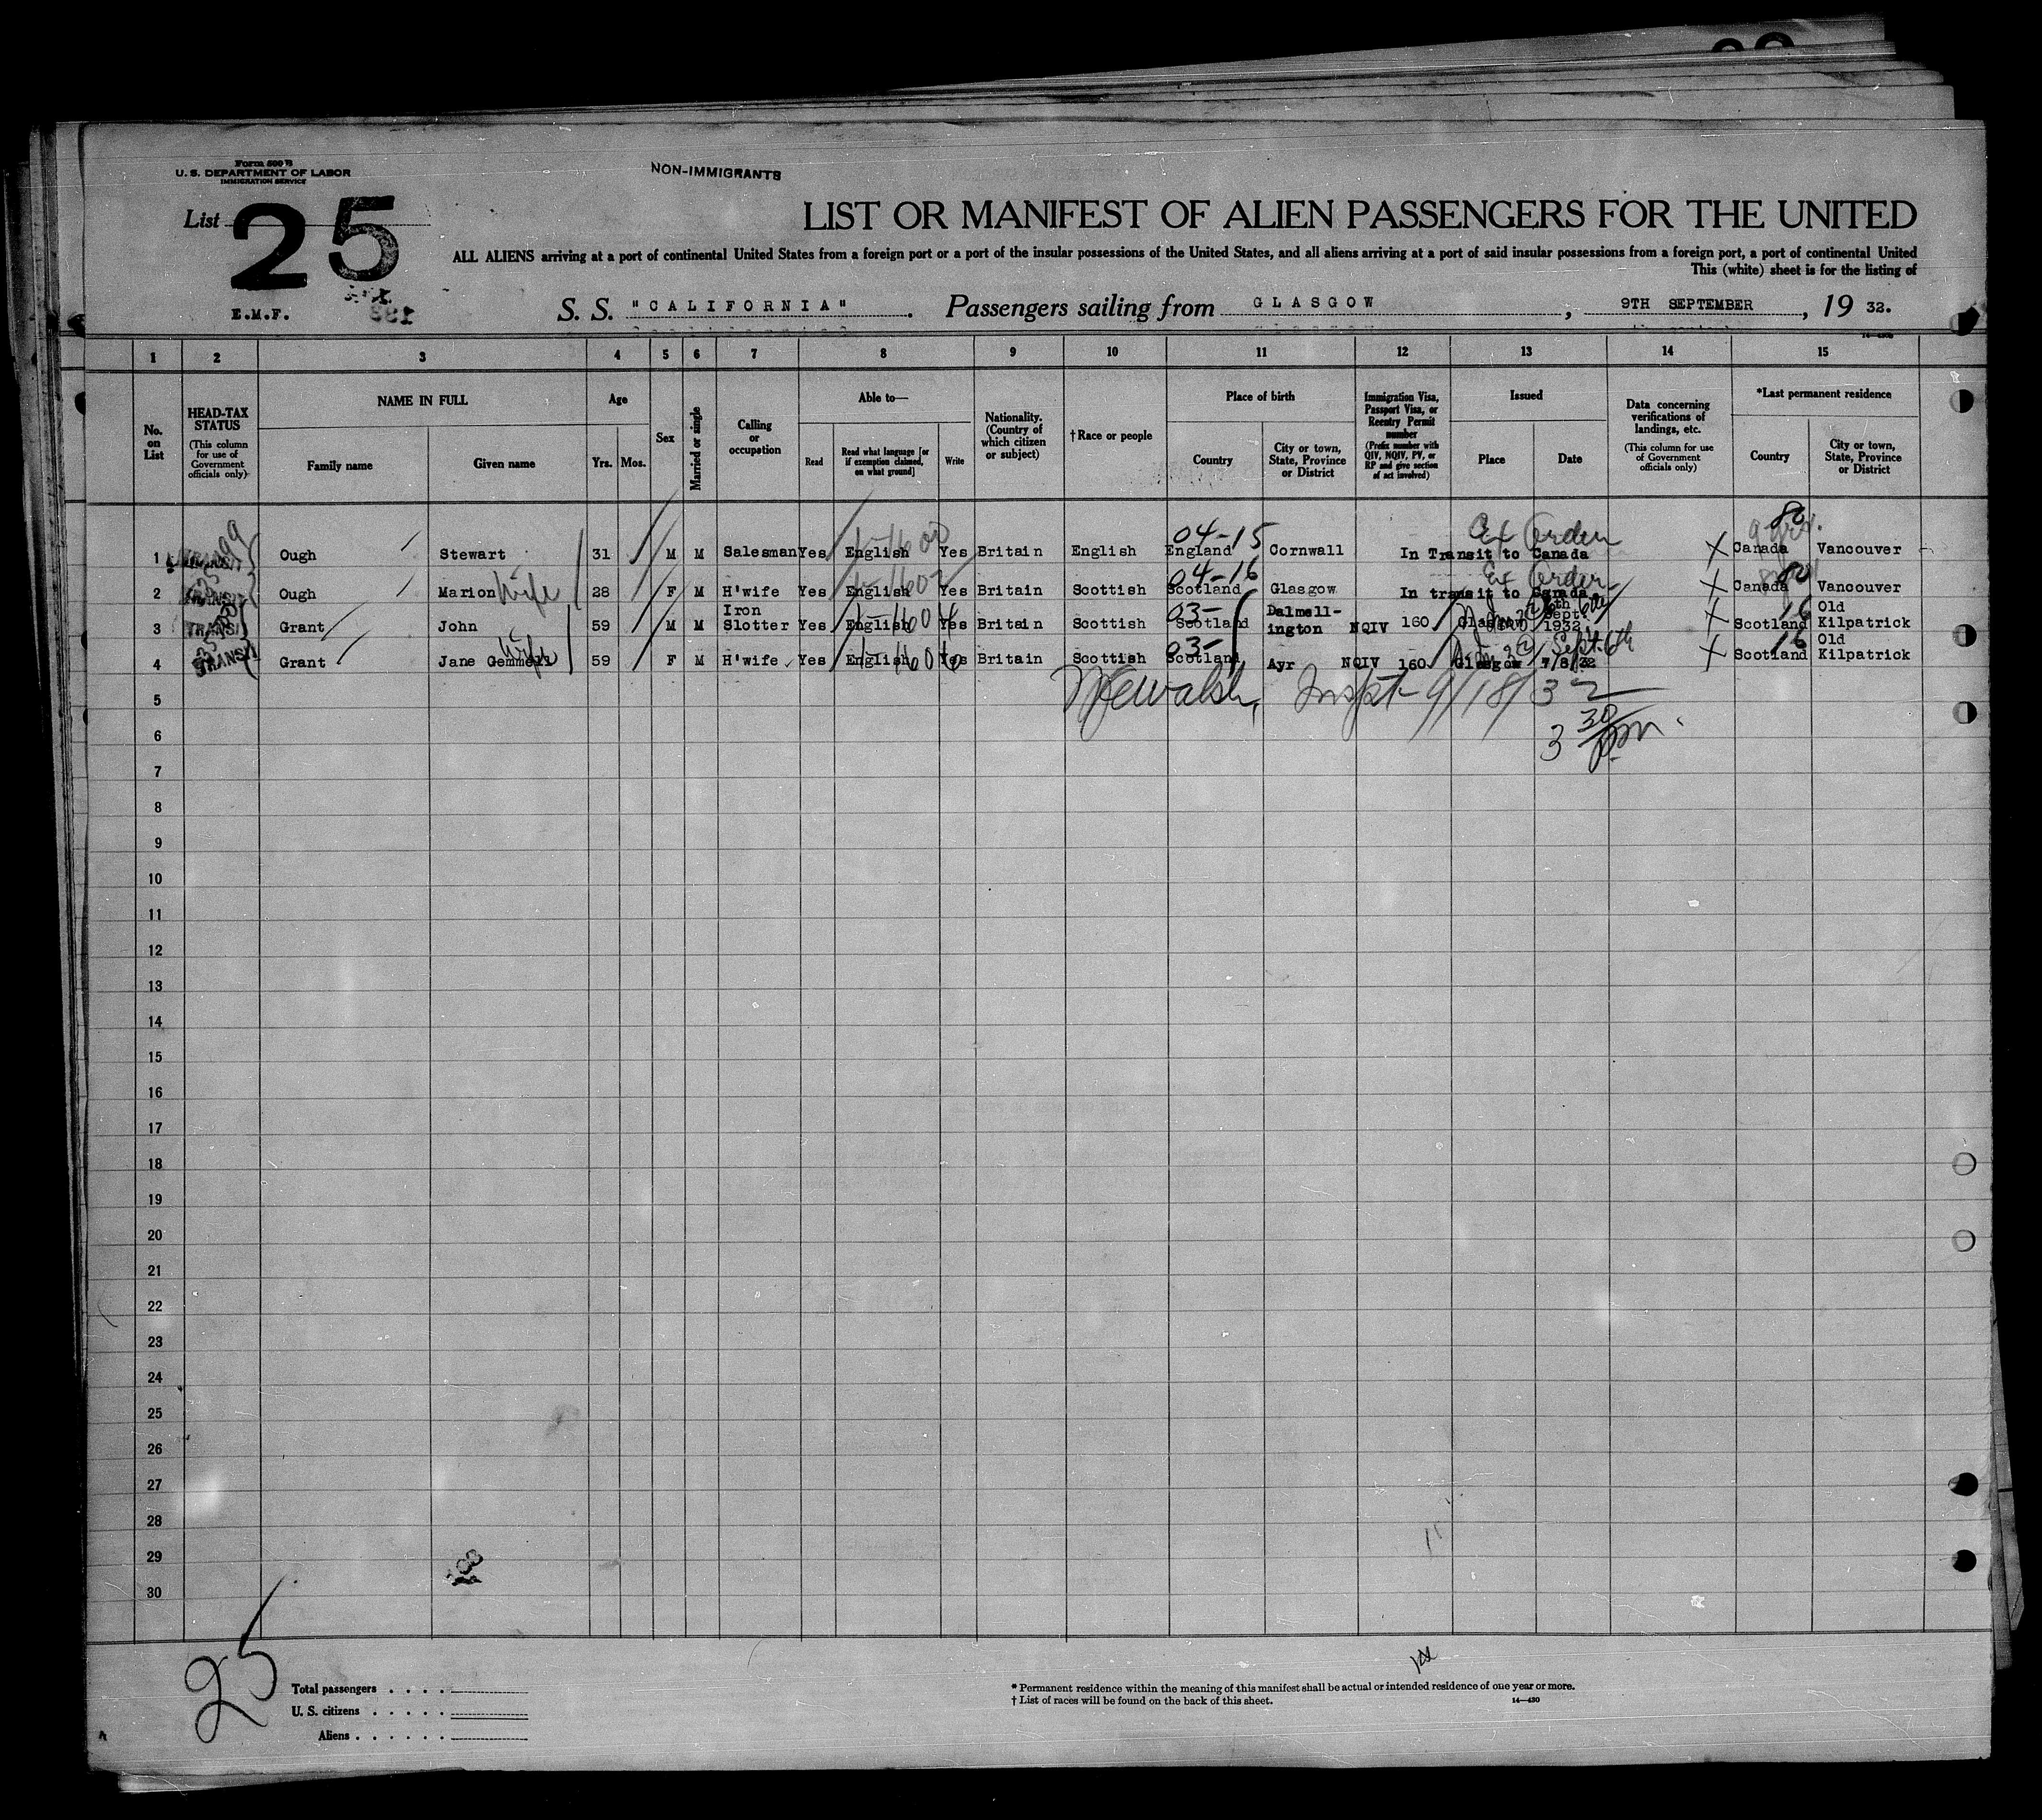 Form 500 B
U. S. DEPARTMENT OF LABOR
IMMIGRATION SERVICE
NON-IMMIGRANTS
List 25
LIST OR MANIFEST OF ALIEN PASSENGERS FOR THE UNITED
ALL ALIENS arriving at a port of continental United States from a foreign port or a port of the insular possessions of the United States, and all aliens arriving at a port of said insular possessions from a foreign port, a port of continental United
This (white) sheet is for the listing of
E.M.F. S. S. "CALIFORNIA". Passengers sailing from GLASGOW, 9TH SEPTEMBER, 19 32.
1 2 3 4 5 6 7 8 9 10 11 12 13 14 15
No. on List
HEAD-TAX STATUS
(This column for use of Government officials only)
NAME IN FULL
Family name Given name
Age
Yrs. Mos.
Sex
Married or single
Calling or occupation
Able to—
Read
Read what language [or if exemption claimed, on what ground]
Write
Nationality. (Country of which citizen or subject)
†Race or people
Place of birth
Country
City or town, State, Province or District
Immigration Visa, Passport Visa, or Reentry Permit number
(Prefix number with QIV, NQIV, PV, or RP and give section of act involved)
Issued
Place Date
Data concerning verifications of landings, etc.
(This column for use of Government officials only)
*Last permanent residence
Country
City or town, State, Province or District
04-15 Ex Order 80
1 Ough Stewart 31 M M Salesman Yes English Yes Britain English England Cornwall In Transit to Canada X Canada Vancouver
04-16 Ex Order 80
2 Ough Marion Wife 28 F M H'wife Yes English Yes Britain Scottish Scotland Glasgow In transit to Canada X Canada Vancouver
3 TRANSIT Grant John 59 M M Iron Slotter Yes English Yes Britain Scottish 03- Scotland Dalmell-ington NQIV 160 Glasgow Sept. 1932 X 16 Scotland Old Kilpatrick
4 TRANSIT Grant Jane Gemmell Wife 59 F M H'wife Yes English Yes Britain Scottish 03- Scotland Ayr NQIV 160 Glasgow Sept. 6th X 16 Scotland Old Kilpatrick
Walsh, Inspt- 9/18/32
5
3 30 pm.
6
7
8
9
10
11
12
13
14
15
16
17
18
19
20
21
22
23
24
25
26
27
28
29
30
25
Total passengers . . . .
U. S. citizens . . . . .
Aliens . . . . . .
* Permanent residence within the meaning of this manifest shall be actual or intended residence of one year or more.
† List of races will be found on the back of this sheet.
14—430